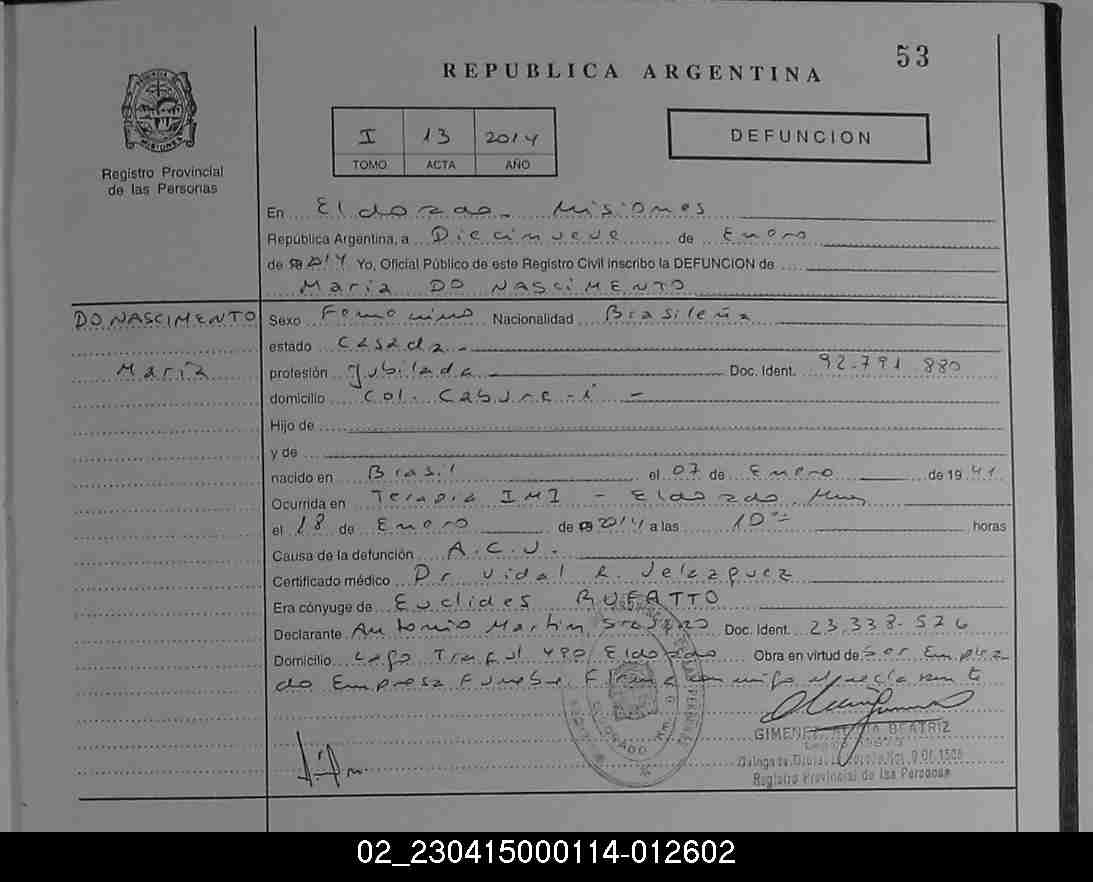 53
REPUBLICA ARGENTINA
PROVINCIA DE
MISIONES
Registro Provincial
de las Personas
I 13 2014
TOMO ACTA AÑO
DEFUNCION
En Eldorado - Misiones
República Argentina, a Diecinueve de Enero
de 2014 Yo, Oficial Público de este Registro Civil inscribo la DEFUNCION de
María DO NASCIMENTO
DO NASCIMENTO
María
Sexo Femenino Nacionalidad Brasileña
estado Casada -
profesión Jubilada Doc. Ident. 92.791 880
domicilio Col. Cabure-i -
Hijo de
y de
nacido en Brasil el 07 de Enero de 1941
Ocurrida en Terapia - Eldorado,
el 18 de Enero de 2014 a las 10 horas
Causa de la defunción A.C.V.
Certificado médico Dr. Vidal R. Velazquez
Era cónyuge de Euclides RUFATTO
Declarante Antonio Martin Doc. Ident. 23.338.526
Domicilio Lago 490 Eldorado Obra en virtud de Ser Emplea
do Empresa Funebre. Firma conmigo
GIMENEZ BEATRIZ
Registro Provincial de las Personas
ELDORADO
02_230415000114-012602